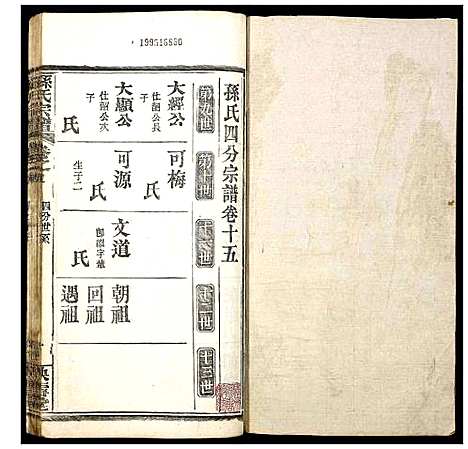 199516850
孫氏四分宗譜卷十五
第九世
第十世
十一世
十二世
十三世
大經公
仕詔公長子
可梅
大顯公
仕詔公次子
氏
可源
生子二
氏
文道
氏
朝祖
回祖
遇祖
孫氏宗譜
四分世系